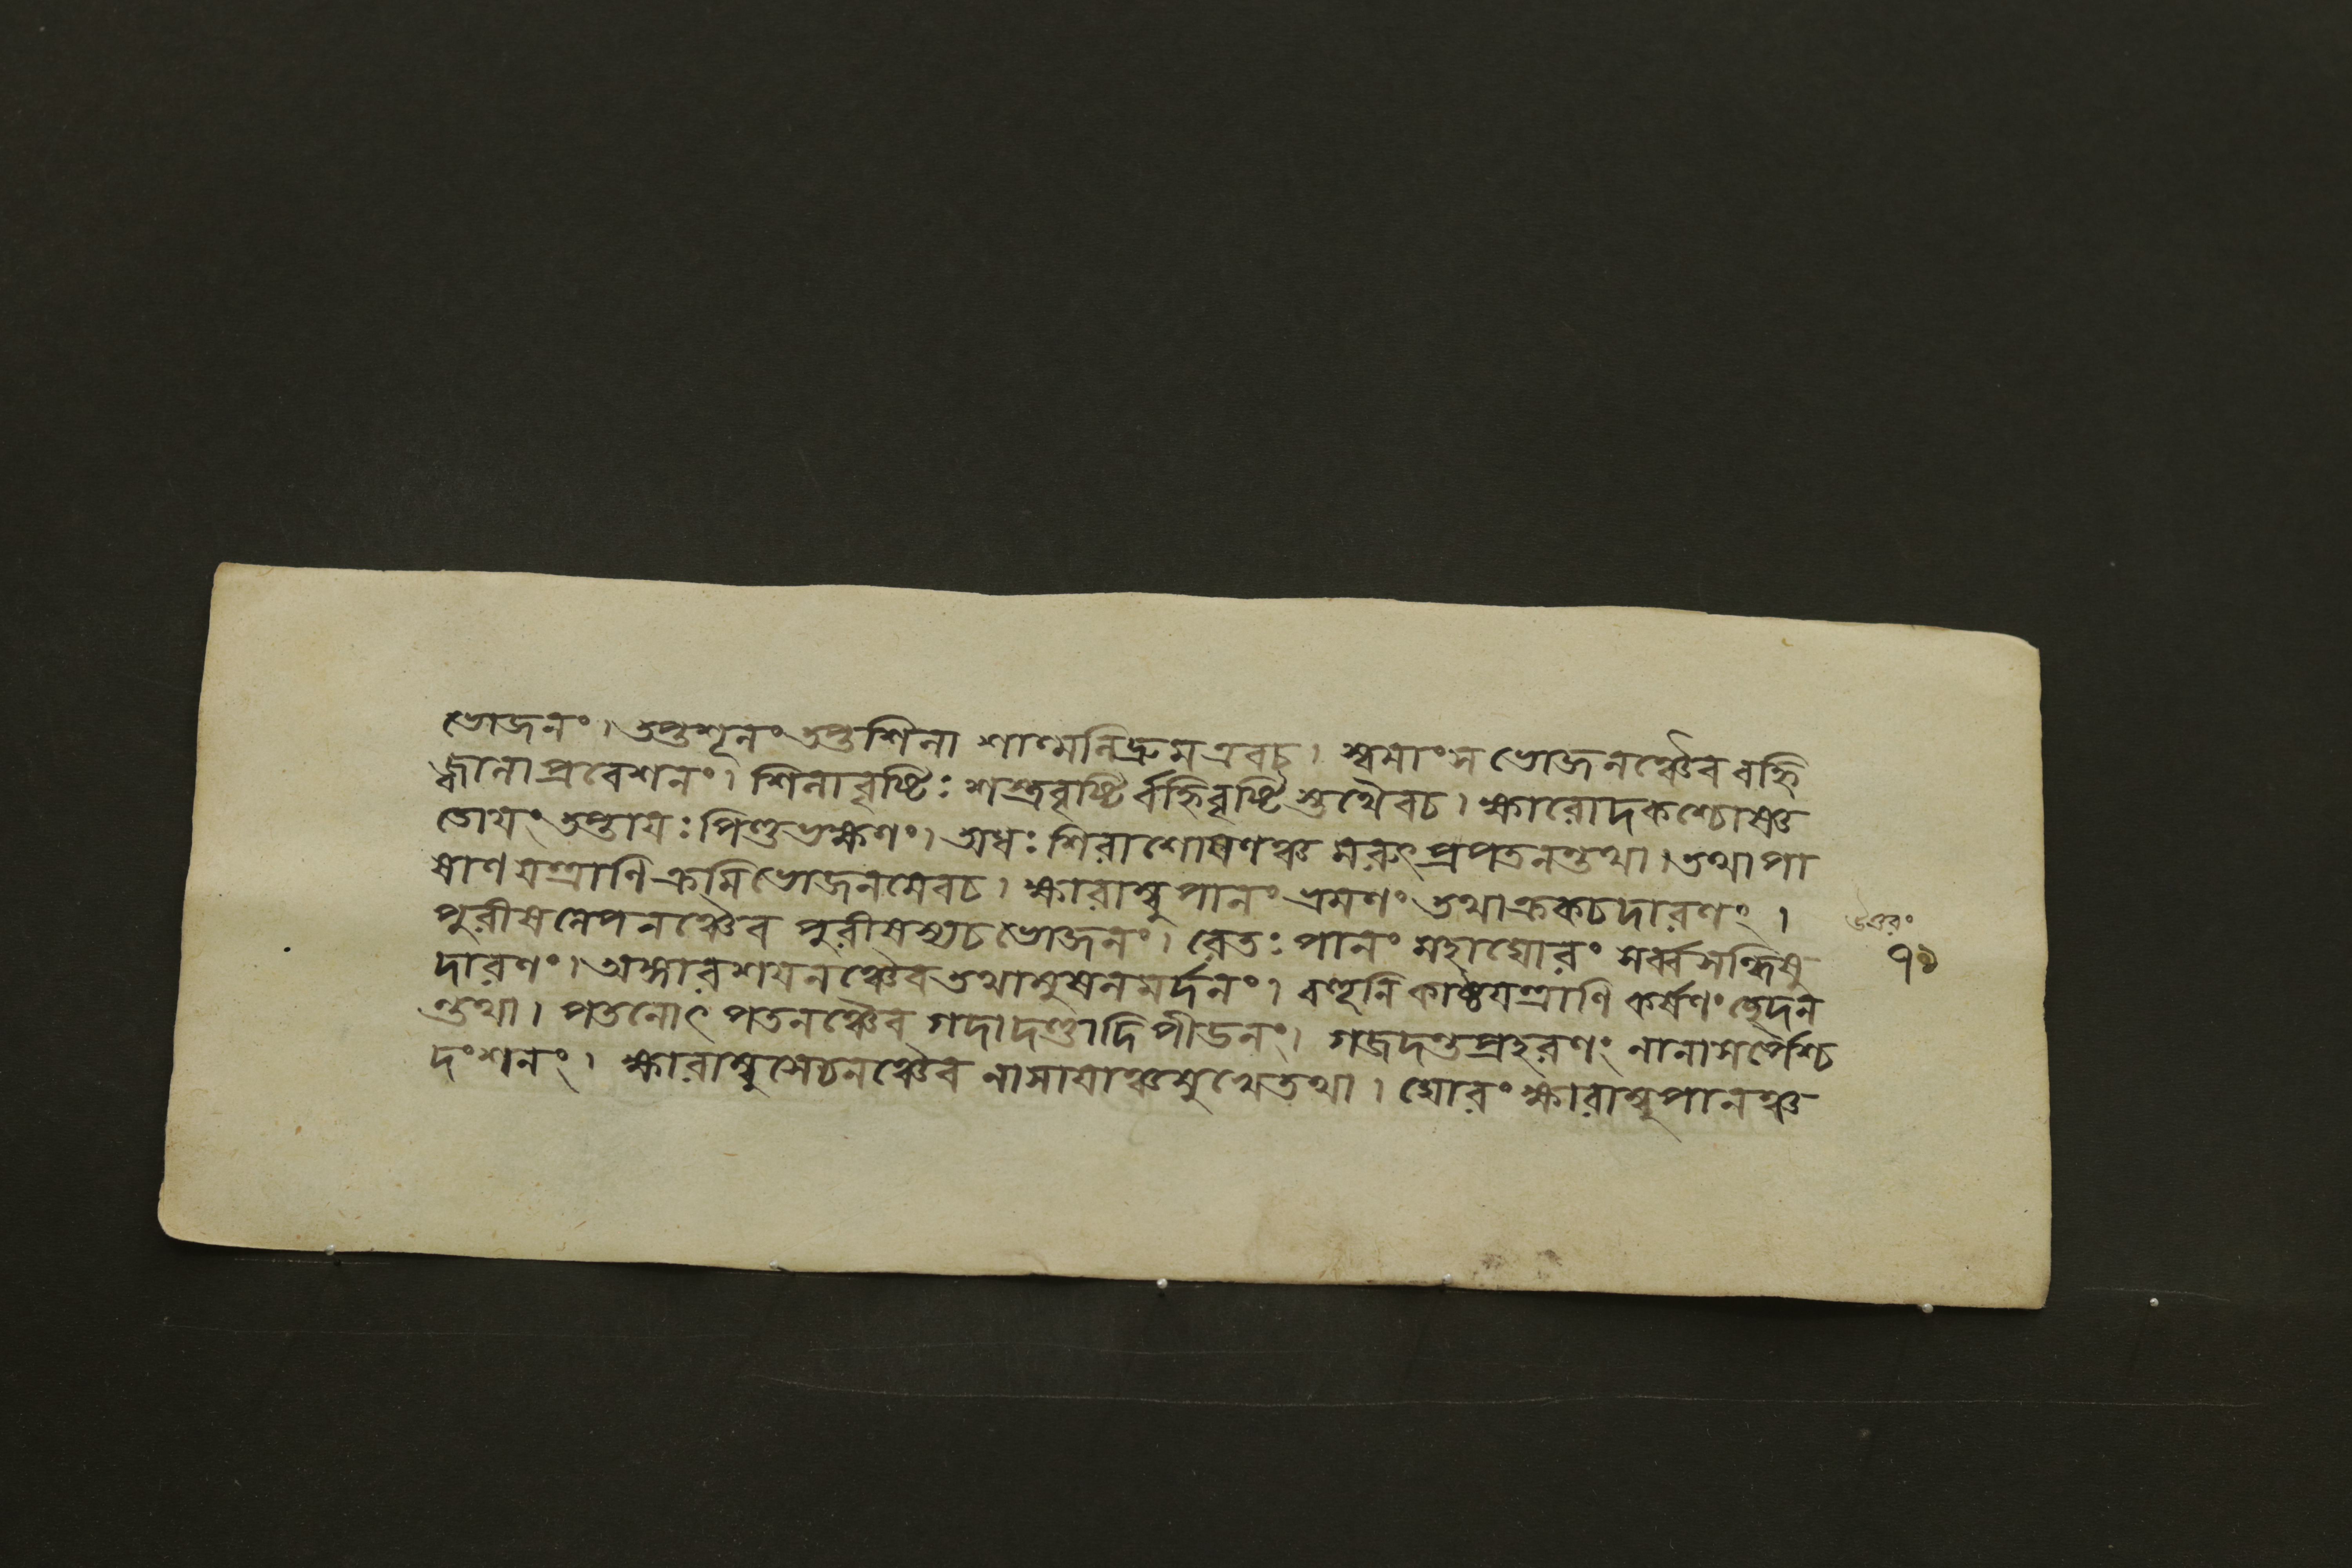 ভোজনং। তপ্তশূলং তপ্তশিলা শাল্মলিদ্রুম এবচ। স্বমাংস ভোজনঞ্চৈব বহ্নি
জ্বালাপ্রবেশনং। শিলাবৃষ্টিঃ শস্ত্রবৃষ্টির্বহ্নিবৃষ্টিস্তথৈবচ। ক্ষারোদকশ্চোষ্ণ
তোয়ং তপ্তায়ঃ পিণ্ডভক্ষণং। অধঃ শিরাশোষণঞ্চ মরুৎপ্রপতনন্তথা। তথা পা
ষাণযন্ত্রাণি ক্রমিভোজনমেবচ। ক্ষারাম্বুপানং ভ্রমণং তথা ক্রকচদারণং।
পুরীষলেপনঞ্চৈব পুরীষস্যচ ভোজনং। রেতঃ পানং মহাঘোরং সর্ব্বসন্ধিষু
দারণং। অঙ্গারশয়নঞ্চৈব তথা মুষলমর্দনং। বহূনি কাষ্ঠযন্ত্রাণি কর্ষণং ছেদন
ন্তথা। পতনোৎপতনঞ্চৈব গদাদণ্ডাদিপীডনং। গজদন্তপ্রহরণং নানাসর্পৈশ্চ
দংশনং। ক্ষারাম্বুসেচনঞ্চৈব নাসায়াঞ্চমুখেতথা। ঘোরং ক্ষারাম্বুপানঞ্চ